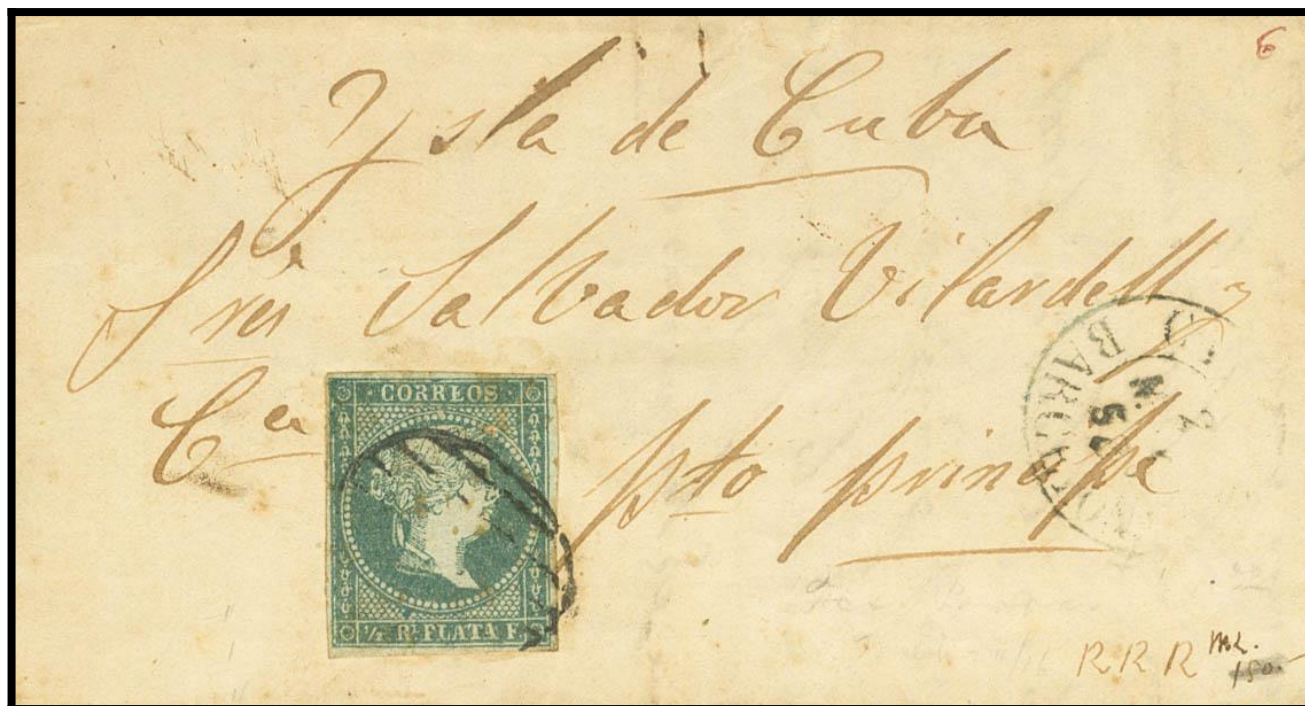 6
Ysla de Cuba
Sres Salvador Vilardell y
Cia
Pto principe
CORREOS
½ R. PLATA F.
BARCELONA
2
RRR ML.
150.-